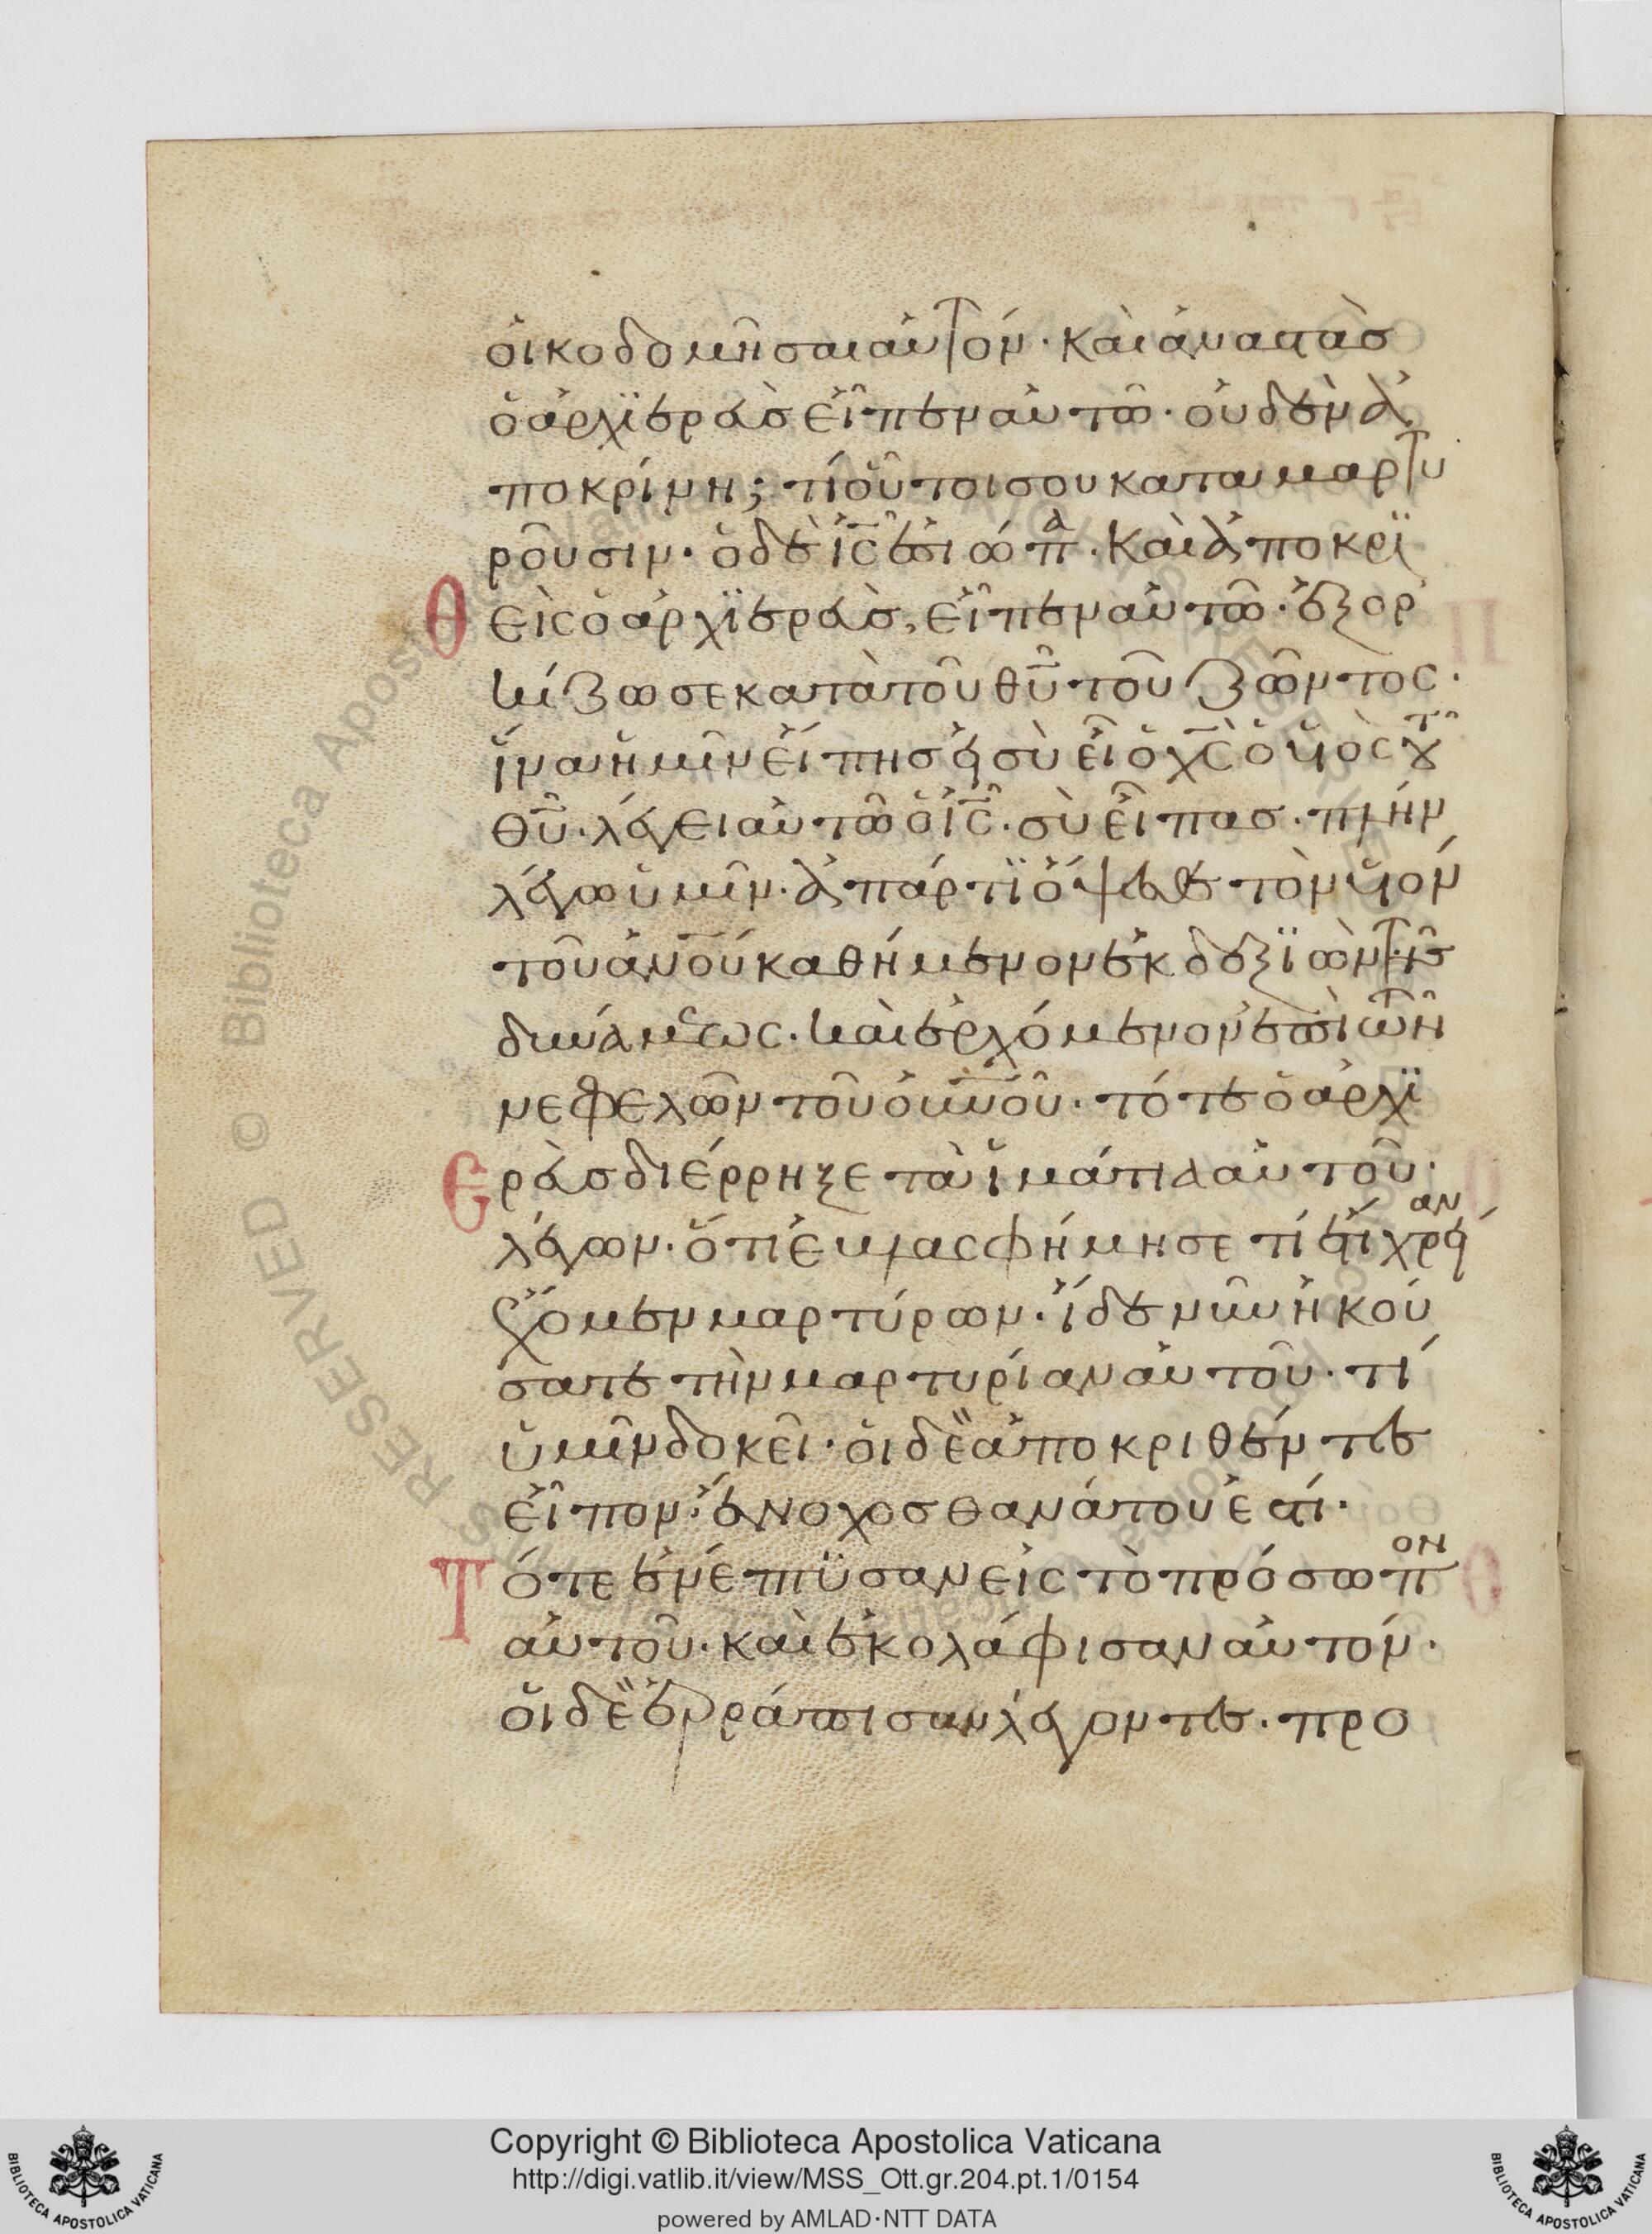 οἰκοδομῆσαι αὐτόν· καὶ ἀναστὰσ
ὁ ἀρχϊερεὺσ εἶπεν αὐτῶ· οὐδὲν ἀ
ποκρίνη; τί οὗτοι σου καταμαρτυ
ροῦσιν· ὁ δὲ ι̅ς̅ ἐσιώπα· καὶ ἀποκρϊ
θεὶς ὁ ἀρχϊερεὺσ, εἶπεν αὐτῶ· ἐξορ
κίζω σε κατὰ τοῦ θ̅υ̅ τοῦ ζῶντος·
ἵνα ἡμῖν εἴπησ εἰ σὺ εἶ ὁ χ̅ς̅ ὁ υἱὸς τοῦ
θ̅υ̅· λέγει αὐτῶ ὁ ι̅ς̅· σὺ εἶπασ· πλήν
λέγω ὑμῖν· ἀπάρτϊ ὄψεσθε τὸν υἱὸν
τοῦ α̅ν̅ο̅υ̅ καθήμενον ἐκ δεξϊῶν τῆσ
δυνάμεως· καὶ ἐρχόμενον ἐπὶ τῶν
νεφελῶν τοῦ ο̅υ̅ν̅ο̅υ̅· τότε ὁ ἀρχϊ
ερεὺσ διέρρηξε τὰ ἱμάτια αὐτοῦ·
λέγων· ὅτι ἐβλασφήμησε τί ἔτι χρείαν
ἔχομεν μαρτύρων· ἴδε νῦν ἠκού
σατε τὴν μαρτυρίαν αὐτοῦ· τί
ὑμῖν δοκεῖ· οἱ δὲ ἀποκριθέντεσ
εἶπον· ἔνοχοσ θανάτου ἐστί·
Τότε ἐνέπτϋσαν εἰς τὸ πρόσωπον
αὐτοῦ· καὶ ἐκολάφισαν αὐτόν·
οἱ δὲ ἐρράπισαν λέγοντεσ· προ
RESERVED © Biblioteca Apostolica Vaticana
Copyright © Biblioteca Apostolica Vaticana
http://digi.vatlib.it/view/MSS_Ott.gr.204.pt.1/0154
powered by AMLAD·NTT DATA
BIBLIOTECA APOSTOLICA VATICANA
BIBLIOTECA APOSTOLICA VATICANA